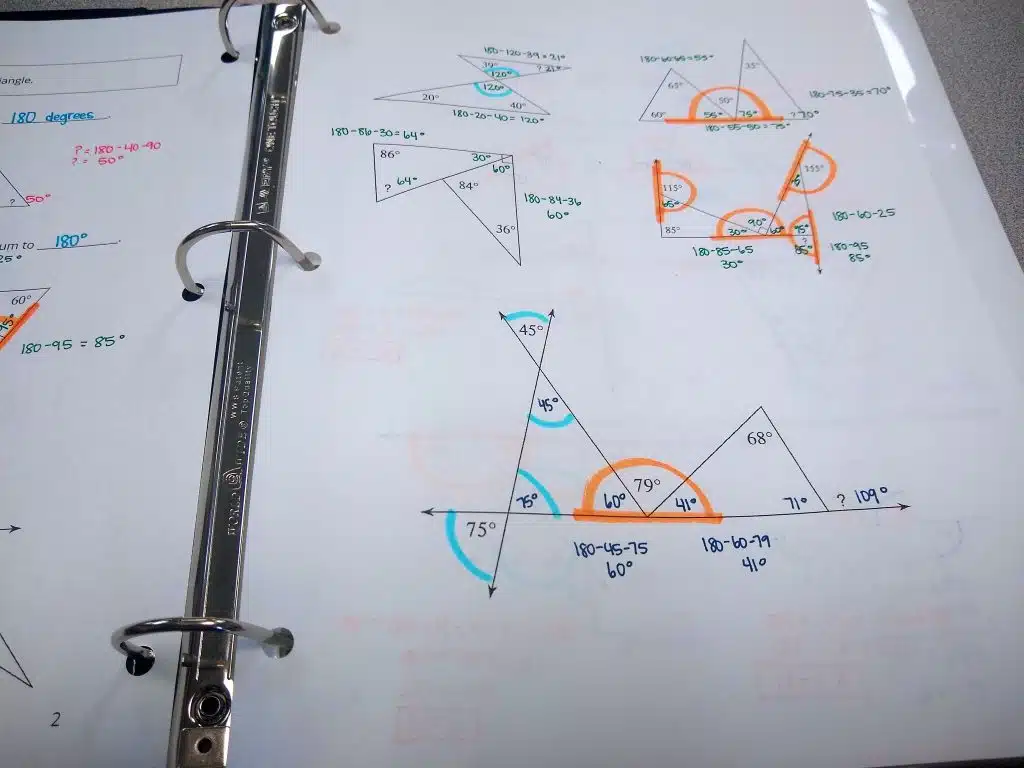 angle.
180 degrees
? = 180-40-90
? = 50°
?
50°
um to 180°.
25°
60°
95°
180-95 = 85°
2
180-120-39=21°
39°
? 21°
120°
120°
20°
40°
180-20-40=120°
180-86-30=64°
86°
30°
60°
? 64°
84°
36°
180-84-36
60°
180-60-65=55°
65°
35°
50°
60°
55°
75°
? 70°
180-75-35=70°
180-55-50=75°
115°
65°
85°
30°
90°
60°
155°
95°
?
85°
180-85-65
30°
180-60-25
180-95
85°
45°
45°
75°
75°
60°
79°
41°
68°
71°
? 109°
180-45-75
60°
180-60-79
41°